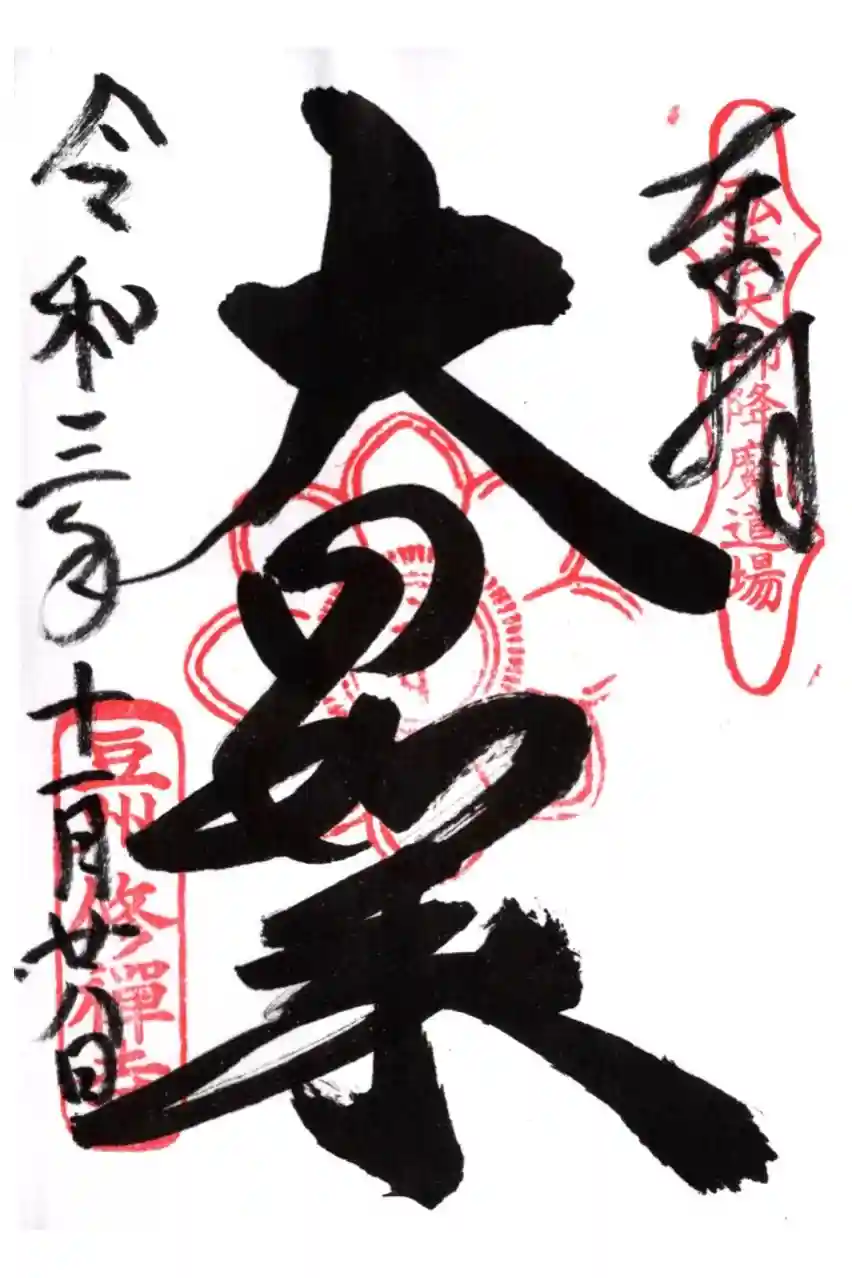 奉拝
弘法大師降魔道場
大日如来
令和三年十一月廿八日
豆州修禪寺